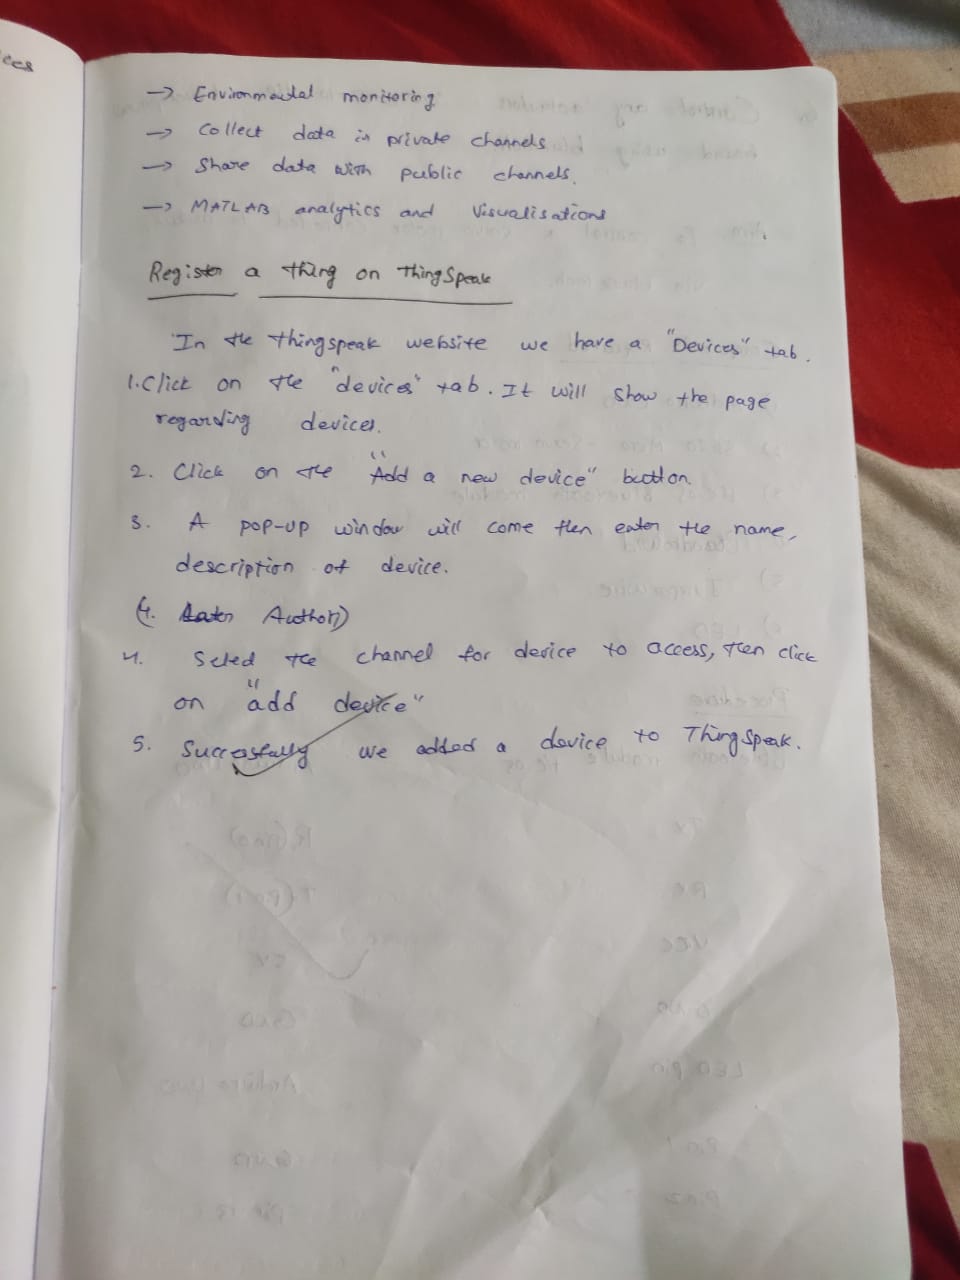 ces
→ Environmental monitoring
→ Collect data in private channels.
→ Share data with public channels.
→ MATLAB analytics and Visualisations
Register a thing on ThingSpeak
In the thingspeak website we have a "Devices" tab.
1. Click on the "devices" tab. It will show the page
regarding devices.
2. Click on the "Add a new device" button.
3. A pop-up window will come then enter the name,
description of device.
4. Author
4. Select the channel for device to access, then click
on "add device"
5. Successfully we added a device to ThingSpeak.